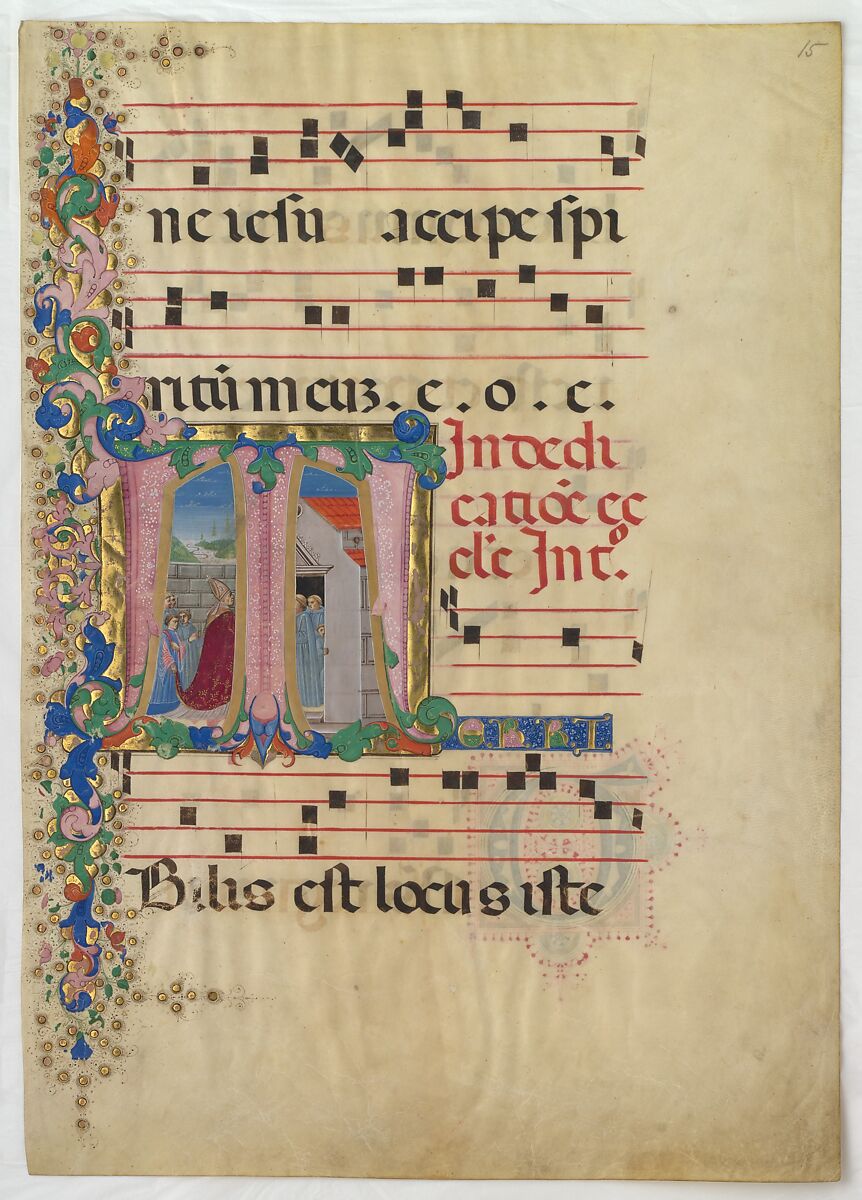 15
ne iesu accipe spi
ritū meuz. e. o. e.
In dedi
catiōe ec
cl'e Int°.
TERRI
Bilis est locus iste